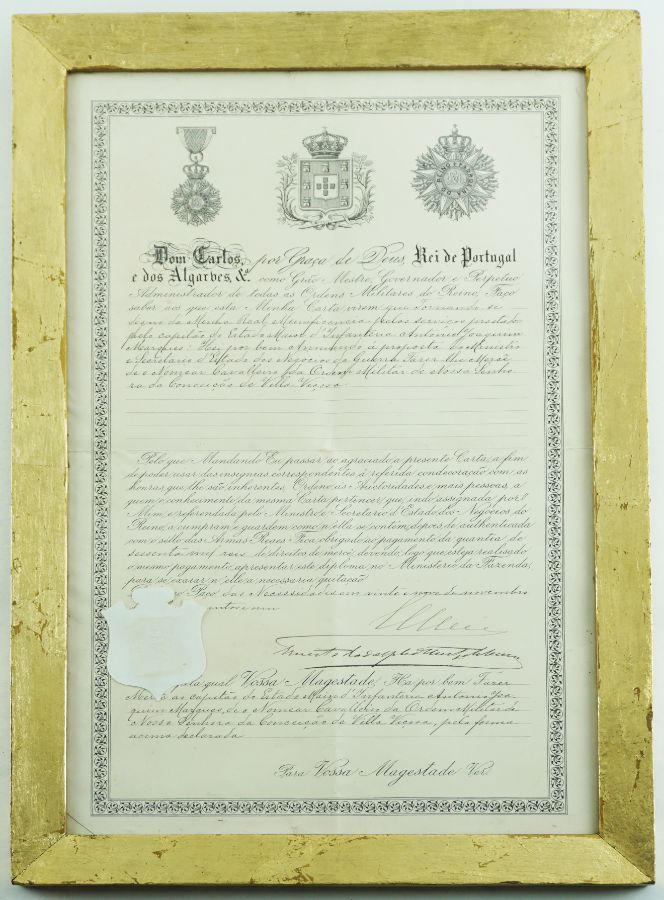 Dom Carlos, por Graça de Deus, Rei de Portugal
e dos Algarves, &.ª como Grão-Mestre, Governador e Perpetuo
Administrador de todas as Ordens Militares do Reino, Faço
saber aos que esta Minha Carta virem que tornando-se
digno da Minha Real Munificencia pelos serviços prestados
pelo capitão do Estado Maior d'Infanteria Antonio Joaquim
Marques: Hei por bem Annuindo á proposta do Ministro
e Secretario d'Estado dos Negocios da Guerra Fazer-lhe Mercê
de o Nomear Cavalleiro da Ordem Militar de Nossa Senho-
ra da Conceição de Villa Viçosa
Pelo que Mandando Eu passar ao agraciado a presente Carta, a fim
de poder usar das insignias correspondentes á referida condecoração com as
honras que lhe são inherentes Ordeno ás Auctoridades e mais pessoas, a
quem o conhecimento da mesma Carta pertencer, que, indo assignada por
Mim, e referendada pelo Ministro e Secretario d'Estado dos Negocios do
Reino, a cumpram e guardem como n'ella se contém, depois de authenticada
com o sello das Armas Reaes. Fica obrigado ao pagamento da quantia de
sessenta mil reis de direitos de mercê, devendo, logo que esteja realisado
o mesmo pagamento, apresentar este diploma no Ministerio da Fazenda,
para se exarar n'elle a necessaria quitação.
Paço das Necessidades em vinte e nove de novembro
um
El Rei
pela qual Vossa Magestade, Ha por bem Fazer
Mercê ao capitão do Estado Maior d'Infanteria Antonio Joa-
quim Marques, de o Nomear Cavalleiro da Ordem Militar de
Nossa Senhora da Conceição de Villa Viçosa, pela forma
acima declarada
Para Vossa Magestade Ver.